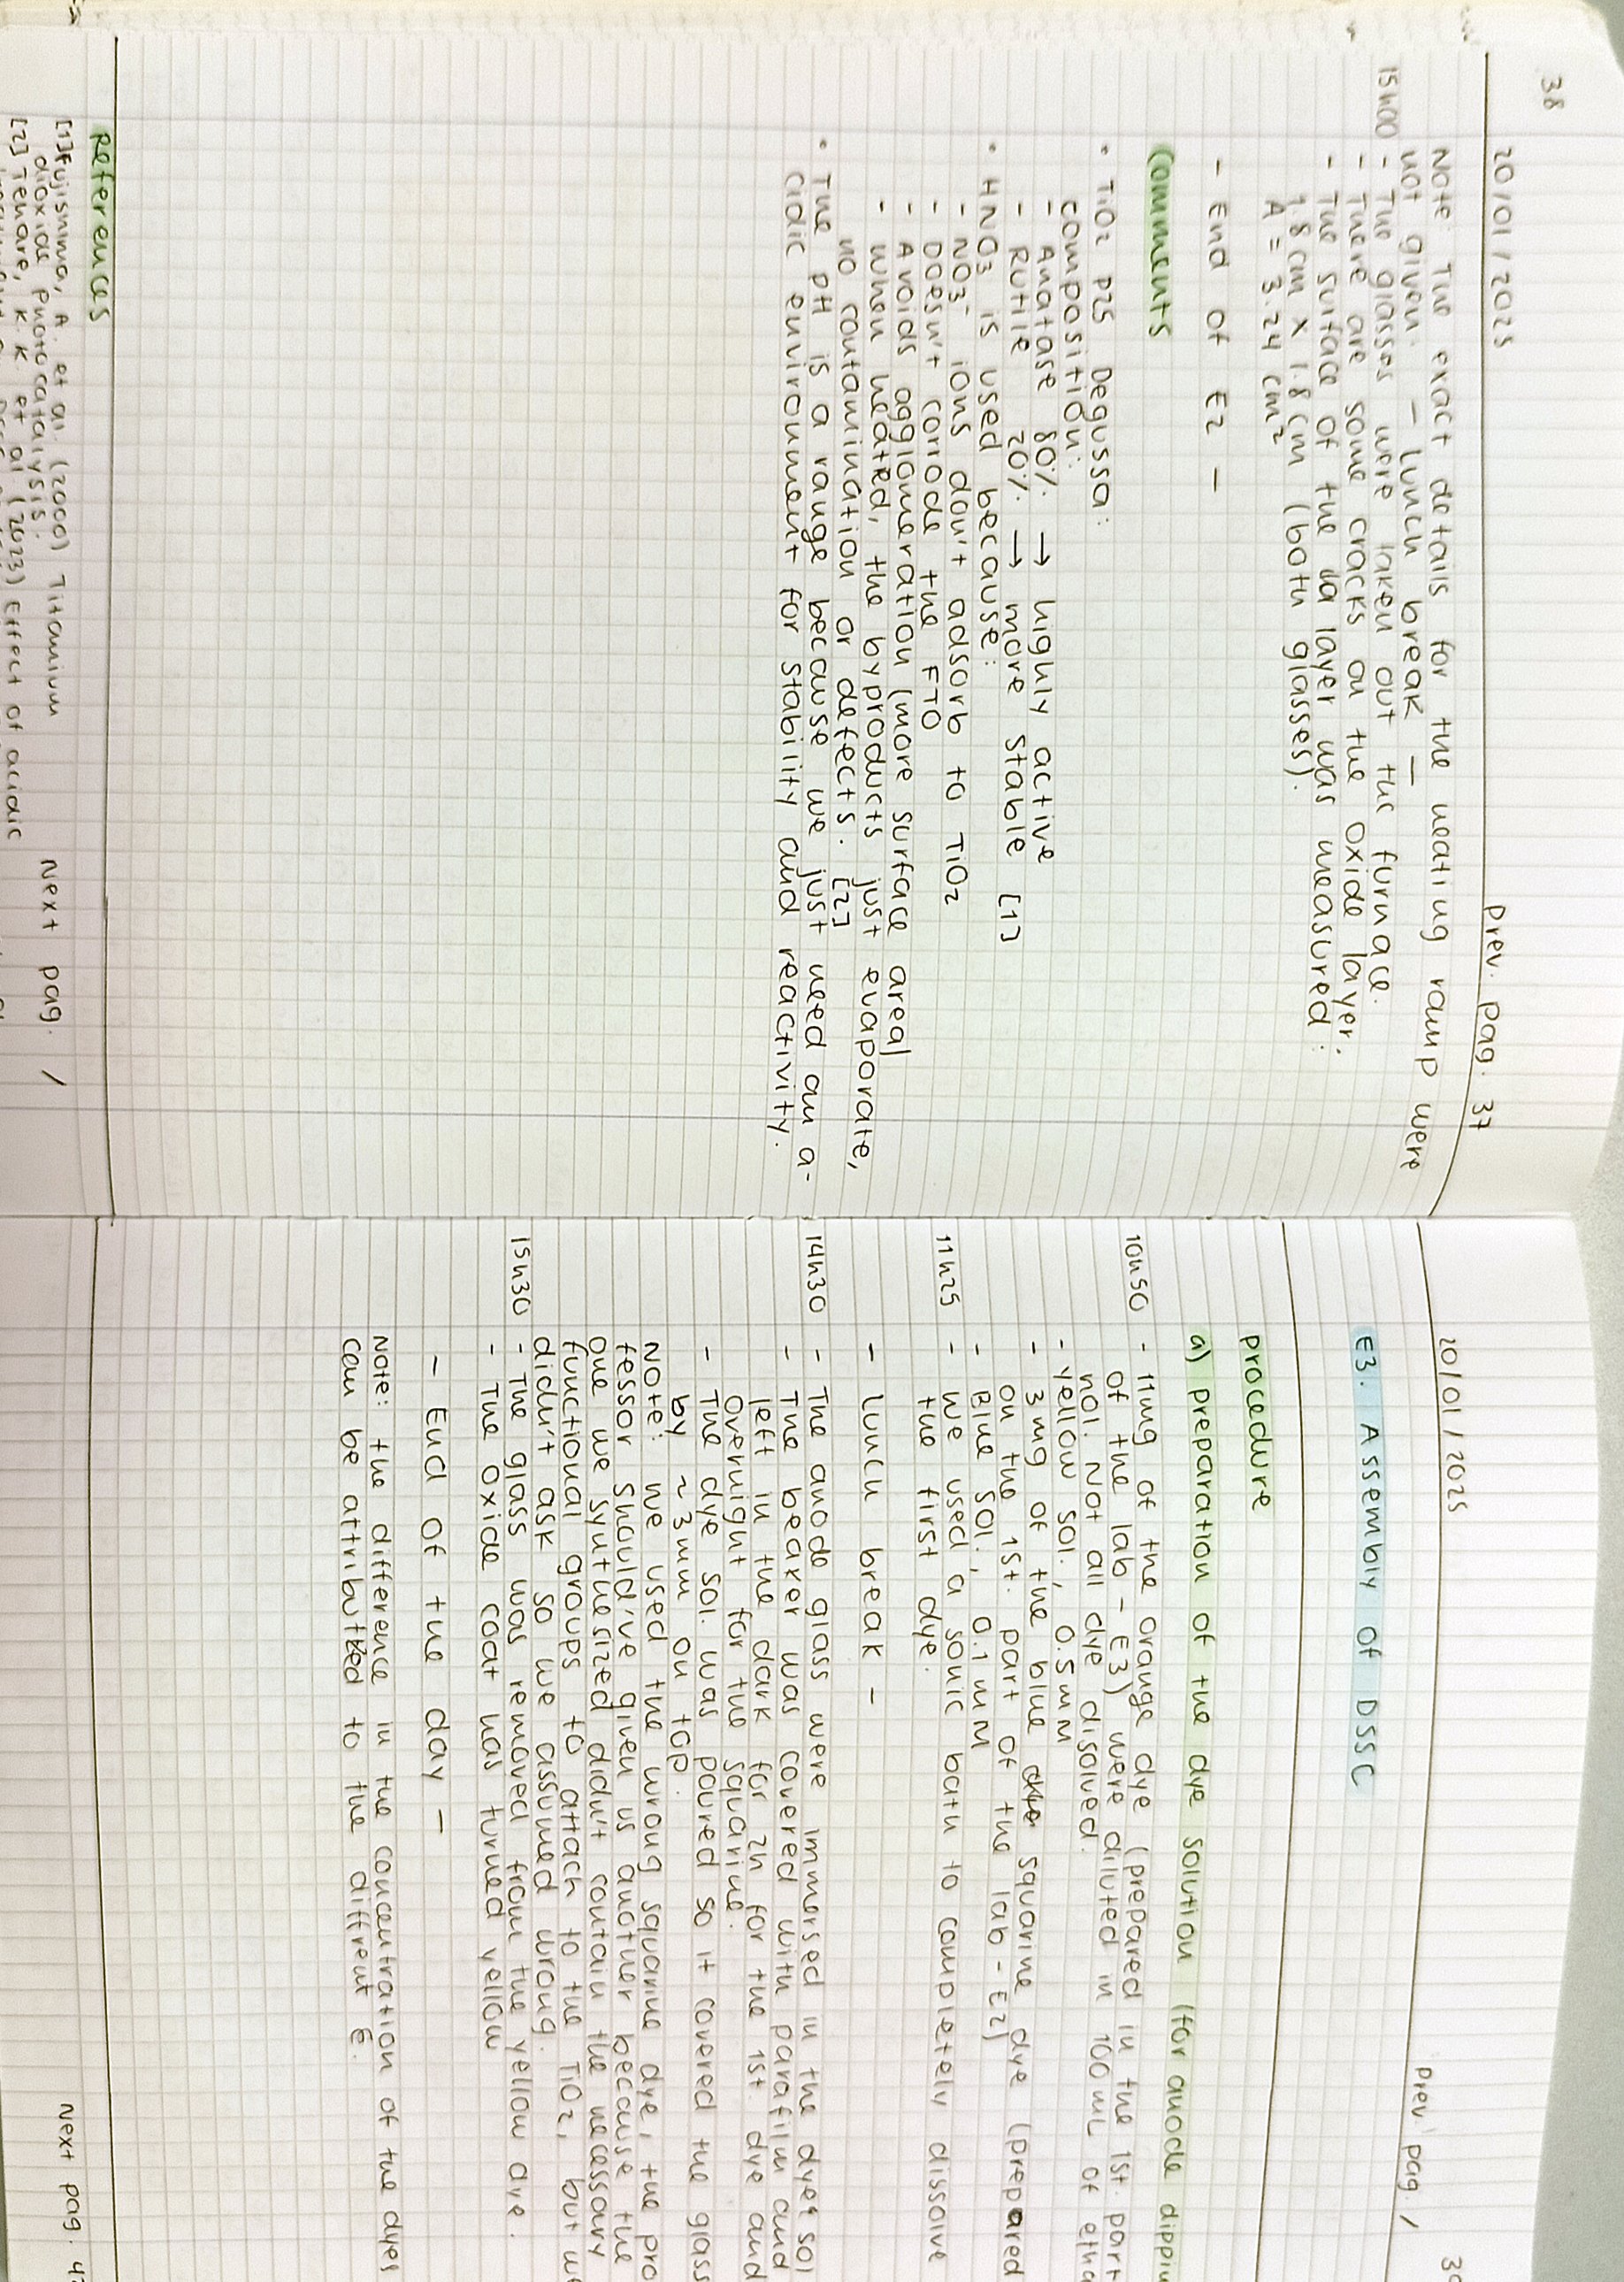 38
20/01/2025
Prev. pag. 37
Note: The exact details for the heating ramp were
not given. – lunch break –
15h00 - The glasses were taken out the furnace.
- There are some cracks on the oxide layer.
- The surface of the layer was measured:
1.8 cm x 1.8 cm (both glasses).
A = 3.24 cm²
- End of E2 -
Comments
• TiO2 P25 Degussa:
composition:
- Anatase 80% → highly active
- Rutile 20% → more stable [1]
• HNO3 is used because:
- NO3⁻ ions don't adsorb to TiO2
- Doesn't corrode the FTO
- Avoids agglomeration (more surface area)
- When heated, the byproducts just evaporate,
no contamination or defects. [2]
• The pH is a range because we just need an a-
cidic environment for stability and reactivity.
References
[1] Fujishima, A. et al. (2000) Titanium
dioxide photocatalysis.
[2] Tenare, K. K. et al (2023) Effect of acidic
Next pag. /
20/01/2025
Prev pag. /
E3. Assembly of DSSC
Procedure
a) Preparation of the dye solution (for anode
10h50 - 11mg of the orange dye (prepared in the 1st. part
of the lab - E3) were diluted in 100 mL of
nol. Not all dye disolved.
- Yellow sol., 0.5 mM
- 3mg of the blue squarine dye (prepared
on the 1st. part of the lab - E2)
- Blue sol., 0.1 mM
11h25 - We used a sonic bath to completely dissolve
the first dye.
- lunch break -
14h30 - The anode glass were immersed in the dyes sol
- The beaker was covered with parafilm and
left in the dark for 2h for the 1st. dye and
overnight for the squarine.
- The dye sol. was poured so it covered the glass
by ~3mm on top.
Note: We used the wrong squarine dye, the pro
fessor should've given us another because the
one we synthesized didn't contain the necessary
functional groups to attach to the TiO2, but we
didn't ask so we assumed wrong.
15h30 - The glass was removed from the yellow dye.
- The oxide coat has turned yellow
- End of the day -
Note: the difference in the concentration of the dyes
can be attributed to the diffrent ε.
Next pag.